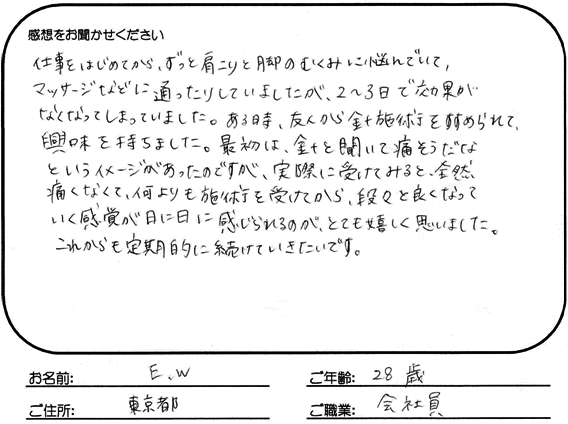 感想をお聞かせください
仕事をはじめてから、ずっと肩こりと脚のむくみに悩んでいて、
マッサージなどに通ったりしていましたが、2~3日で効果が
なくなってしまっていました。ある時、友人から針施術をすすめられて、
興味を持ちました。最初は、針と聞いて痛そうだな
というイメージがあったのですが、実際に受けてみると、全然
痛くなくて、何よりも施術を受けてから、段々と良くなって
いく感覚が日に日に感じられるのが、とても嬉しく思いました。
これからも定期的に続けていきたいです。
お名前: E.W ご年齢: 28歳
ご住所: 東京都 ご職業: 会社員